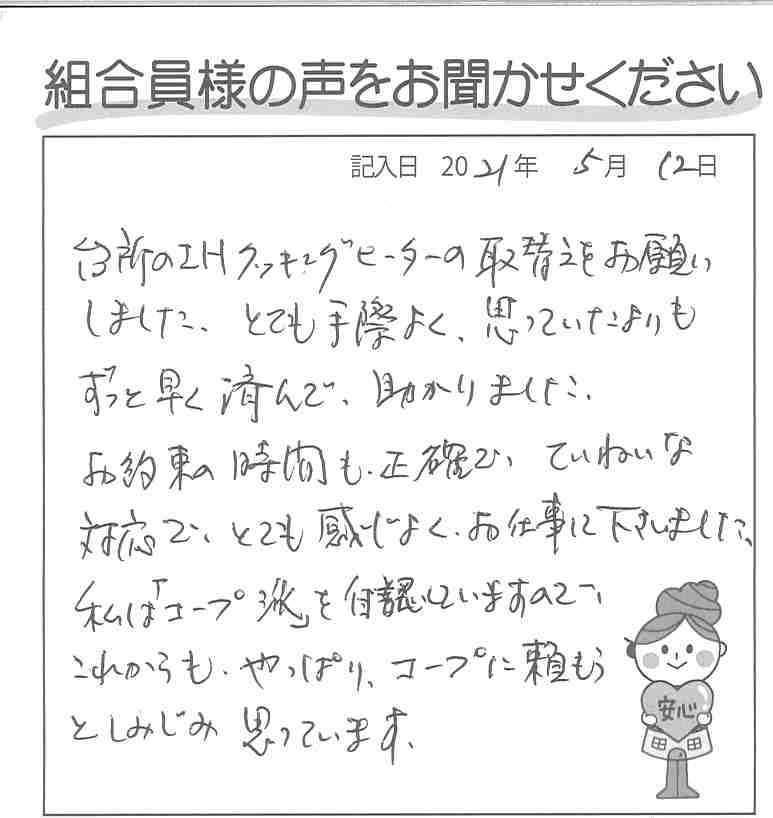 組合員様の声をお聞かせください
記入日 2021年 5月 12日
台所のIHクッキングヒーターの取替えをお願い
しました。とても手際よく、思っていたよりも
ずっと早く済んで、助かりました。
お約束の時間も、正確で、ていねいな
対応で、とても感じよく、お仕事に下さいました。
私は「コープ派」を自認していますので、
これからも、やっぱり、コープに頼もう
としみじみ思っています。
安心